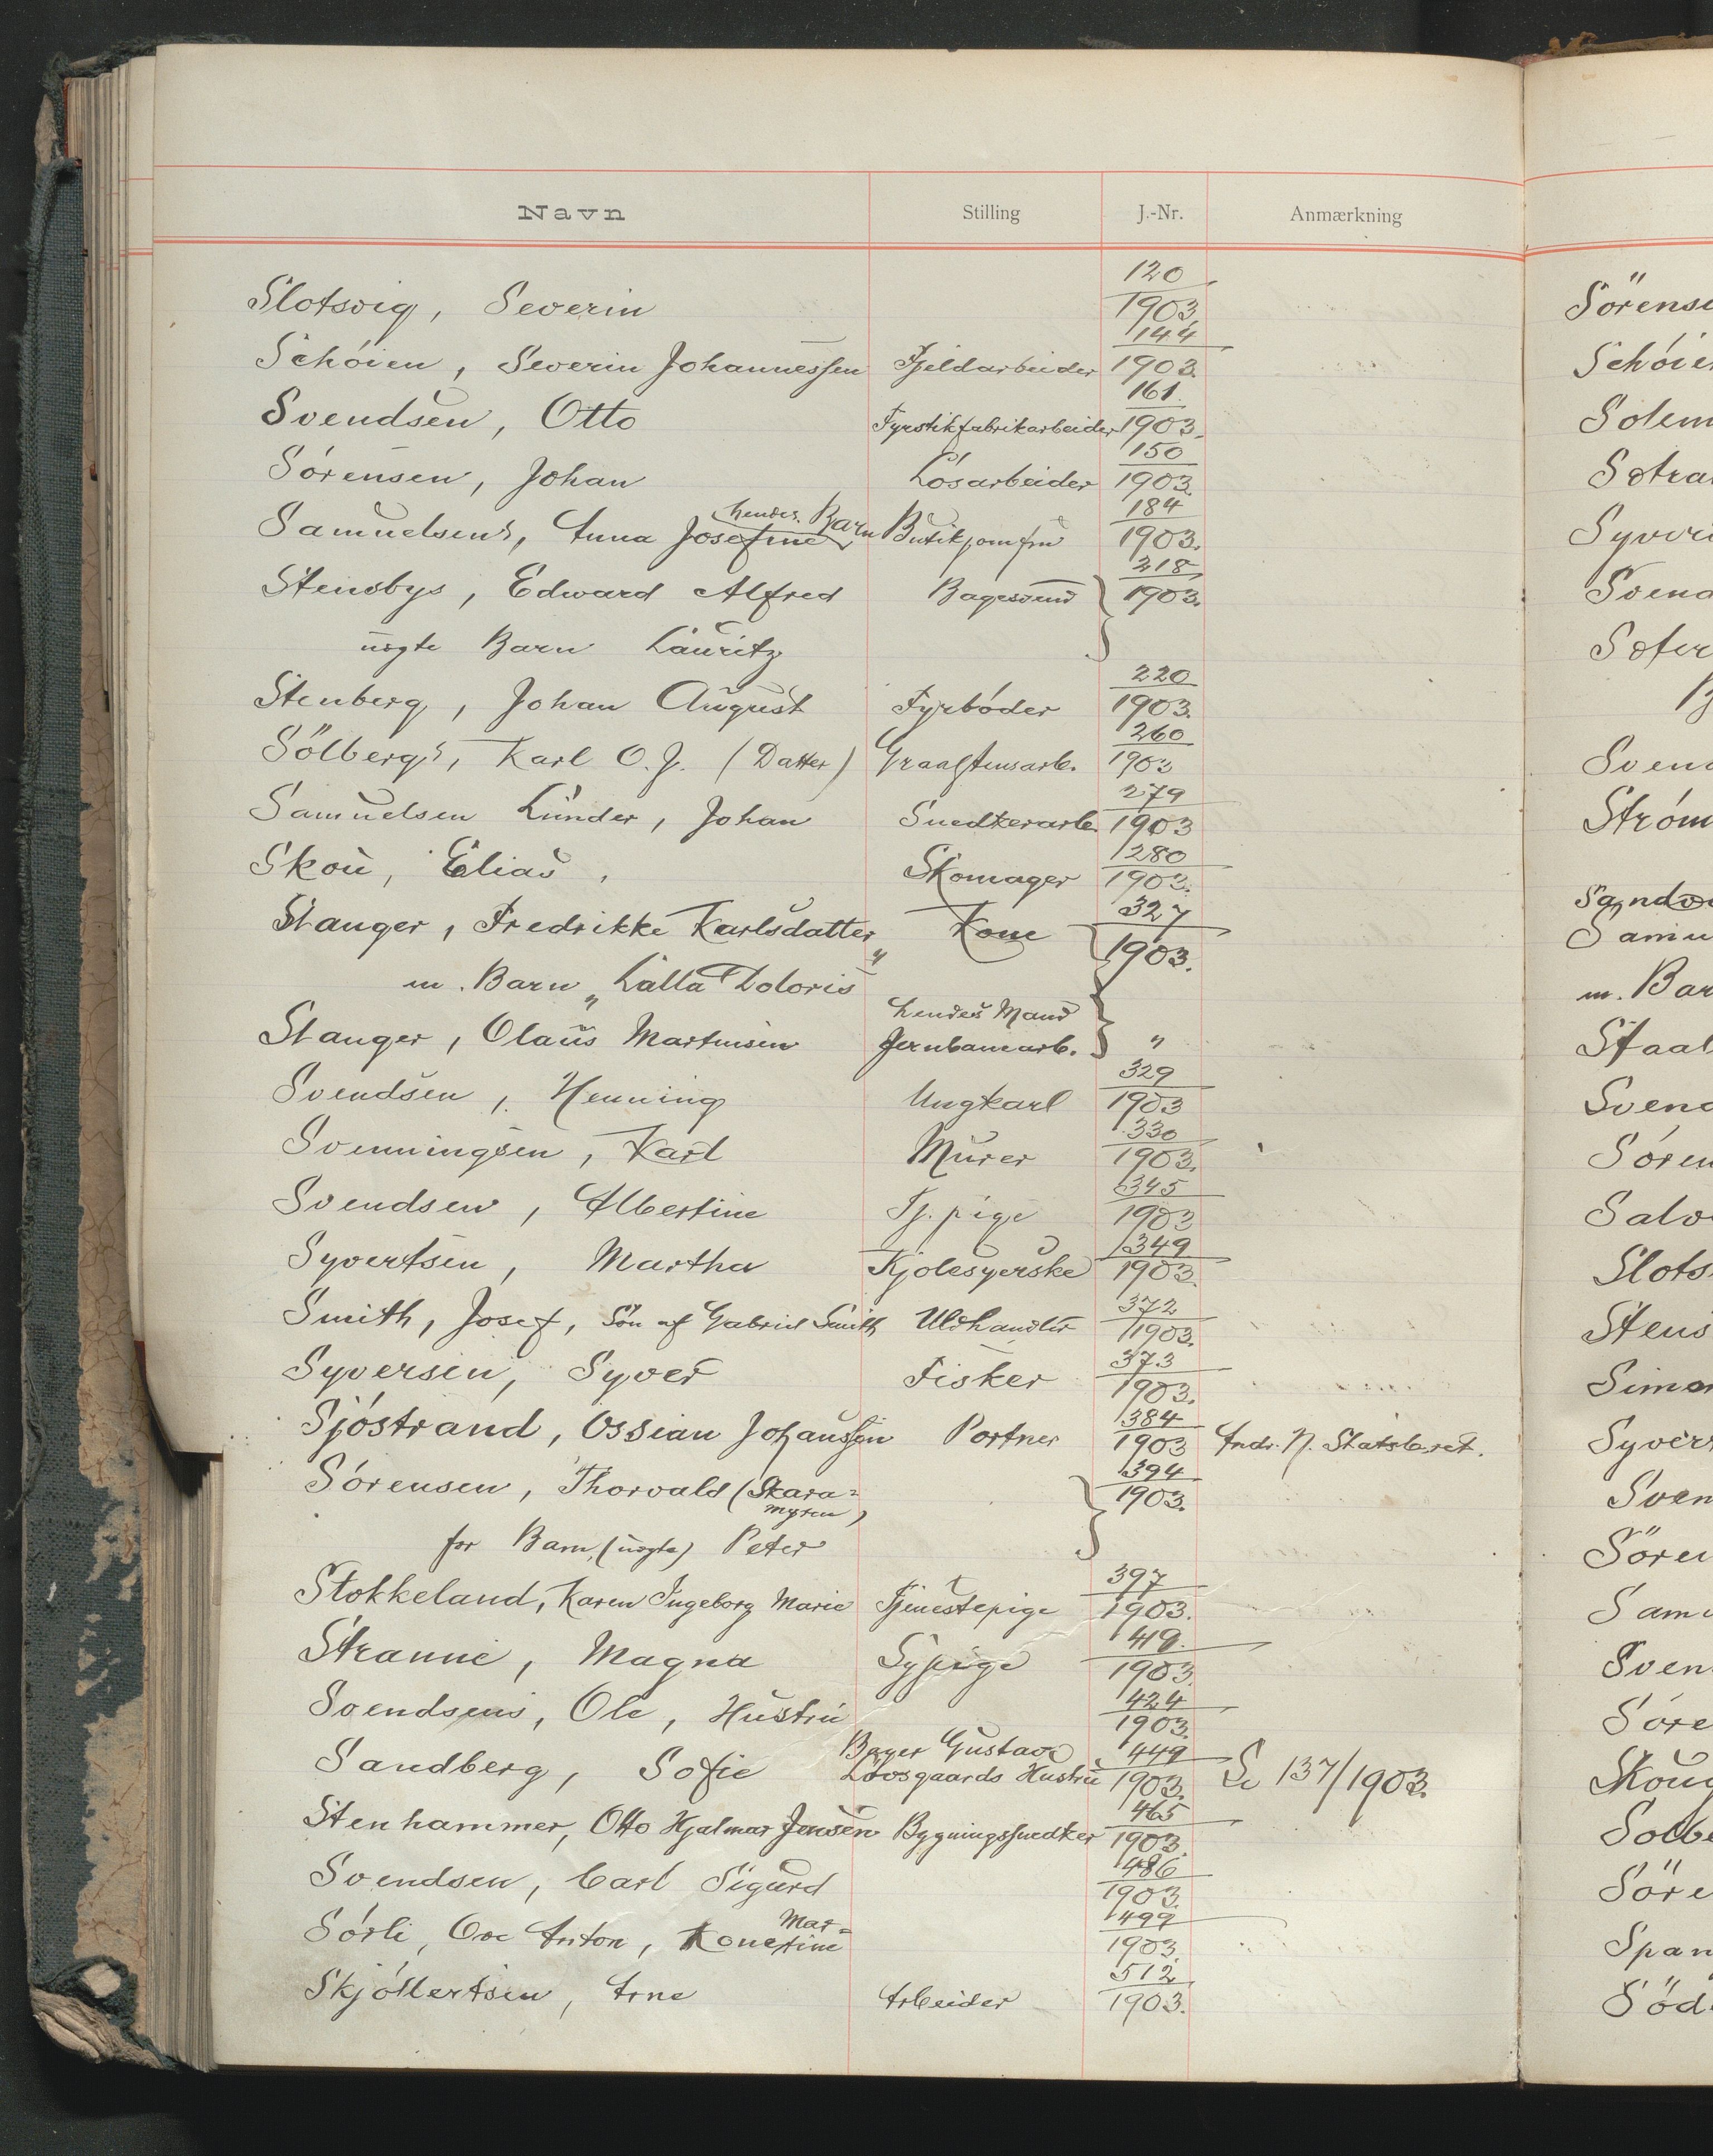 Navn Stilling J.-Nr. Anmærkning
Slotsvig, Severin 120/1903
Schöien, Severin Johannessen Fjeldarbeider 144/1903.
Svendsen, Otto Fyrstikfabrikarbeider 161/1903.
Sörensen, Johan Lösarbeider 150/1903
Samuelsens, Anna Josefine hendes Barn Butikjomfru 184/1903.
Stensbys, Edward Alfred Bagersvend 218/1903.
uægte Barn Lauritz
Stenberg, Johan August Fyrböder 220/1903.
Sölbergs, Karl O. J. (Datter) Graastensarb. 260/1903
Samuelsen Lunder, Johan Snedkerarb. 279/1903
Skou, Elias, Skomager 280/1903.
Stanger, Fredrikke Karlsdatter Kone 327/1903.
m. Barn "Lalla Doloris"
hendes Mand
Stanger, Olaus Martinsen Jernbanearb. "
Svendsen, Henning Ungkarl 329/1903
Svenningsen, Karl Murer 330/1903.
Svendsen, Albertine Tj. pige 345/1903
Syvertsen, Martha Kjolesyerske 349/1903.
Smith, Josef, Sön af Gabriel Smith Uldhandler 372/1903.
Syversen, Syver Fisker 373/1903.
Sjöstrand, Ossian Johanssen Portner 384/1903 Andr. N. Statsb.ret.
Sörensen, Thorvald (Skara= 394/1903.
myren)
for Barn, (uægte) Peter
Stokkeland, Karen Ingeborg Marie Tjenestepige 397/1903.
Stranne, Magna Sypige 419/1903.
Svendsens, Ole, Hustru 424/1903.
Sandberg, Sofie Bager Gustav Lövsgaards Hustru 449/1903. Se 137/1903.
Stenhammer, Otto Hjalmar Jensen Bygningssnedker 465/1903.
Svendsen, Carl Sigurd 486/1903.
Sörli, Ove Anton, Kone Mar=tine 499/1903.
Skjöllertsen, Arne Arbeider 512/1903.
Sörense
Schöie
Solem
Sætra
Syver
Svend
Sæter
B
Svend
Ström
Sandv
Samu
m. Bar
Staal
Svend
Sören
Salv
Slots
Stens
Simo
Syver
Sven
Sören
Samu
Sven
Söre
Skou
Solbe
Söre
Span
Söd